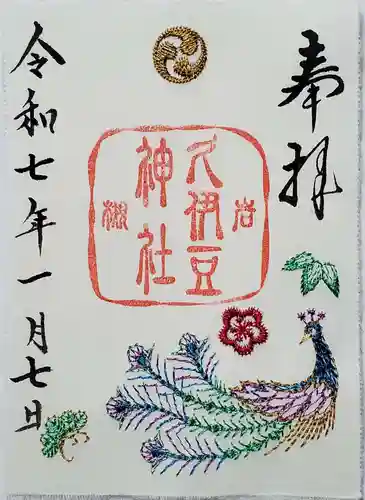 奉拝
岩槻
久伊豆
神社
令和七年一月七日